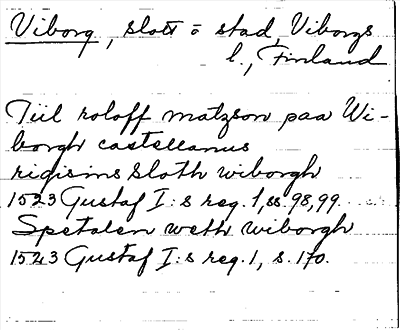 Viborg, slott o stad, Viborgs
l., Finland
Tiil roloff matzson paa Wi-
borgh castellanus
rigisins sloth wiborgh
1523 Gustaf I:s reg. 1, ss. 98, 99.
Spetalen weth wiborgh
1523 Gustaf I:s reg. 1, s. 170.